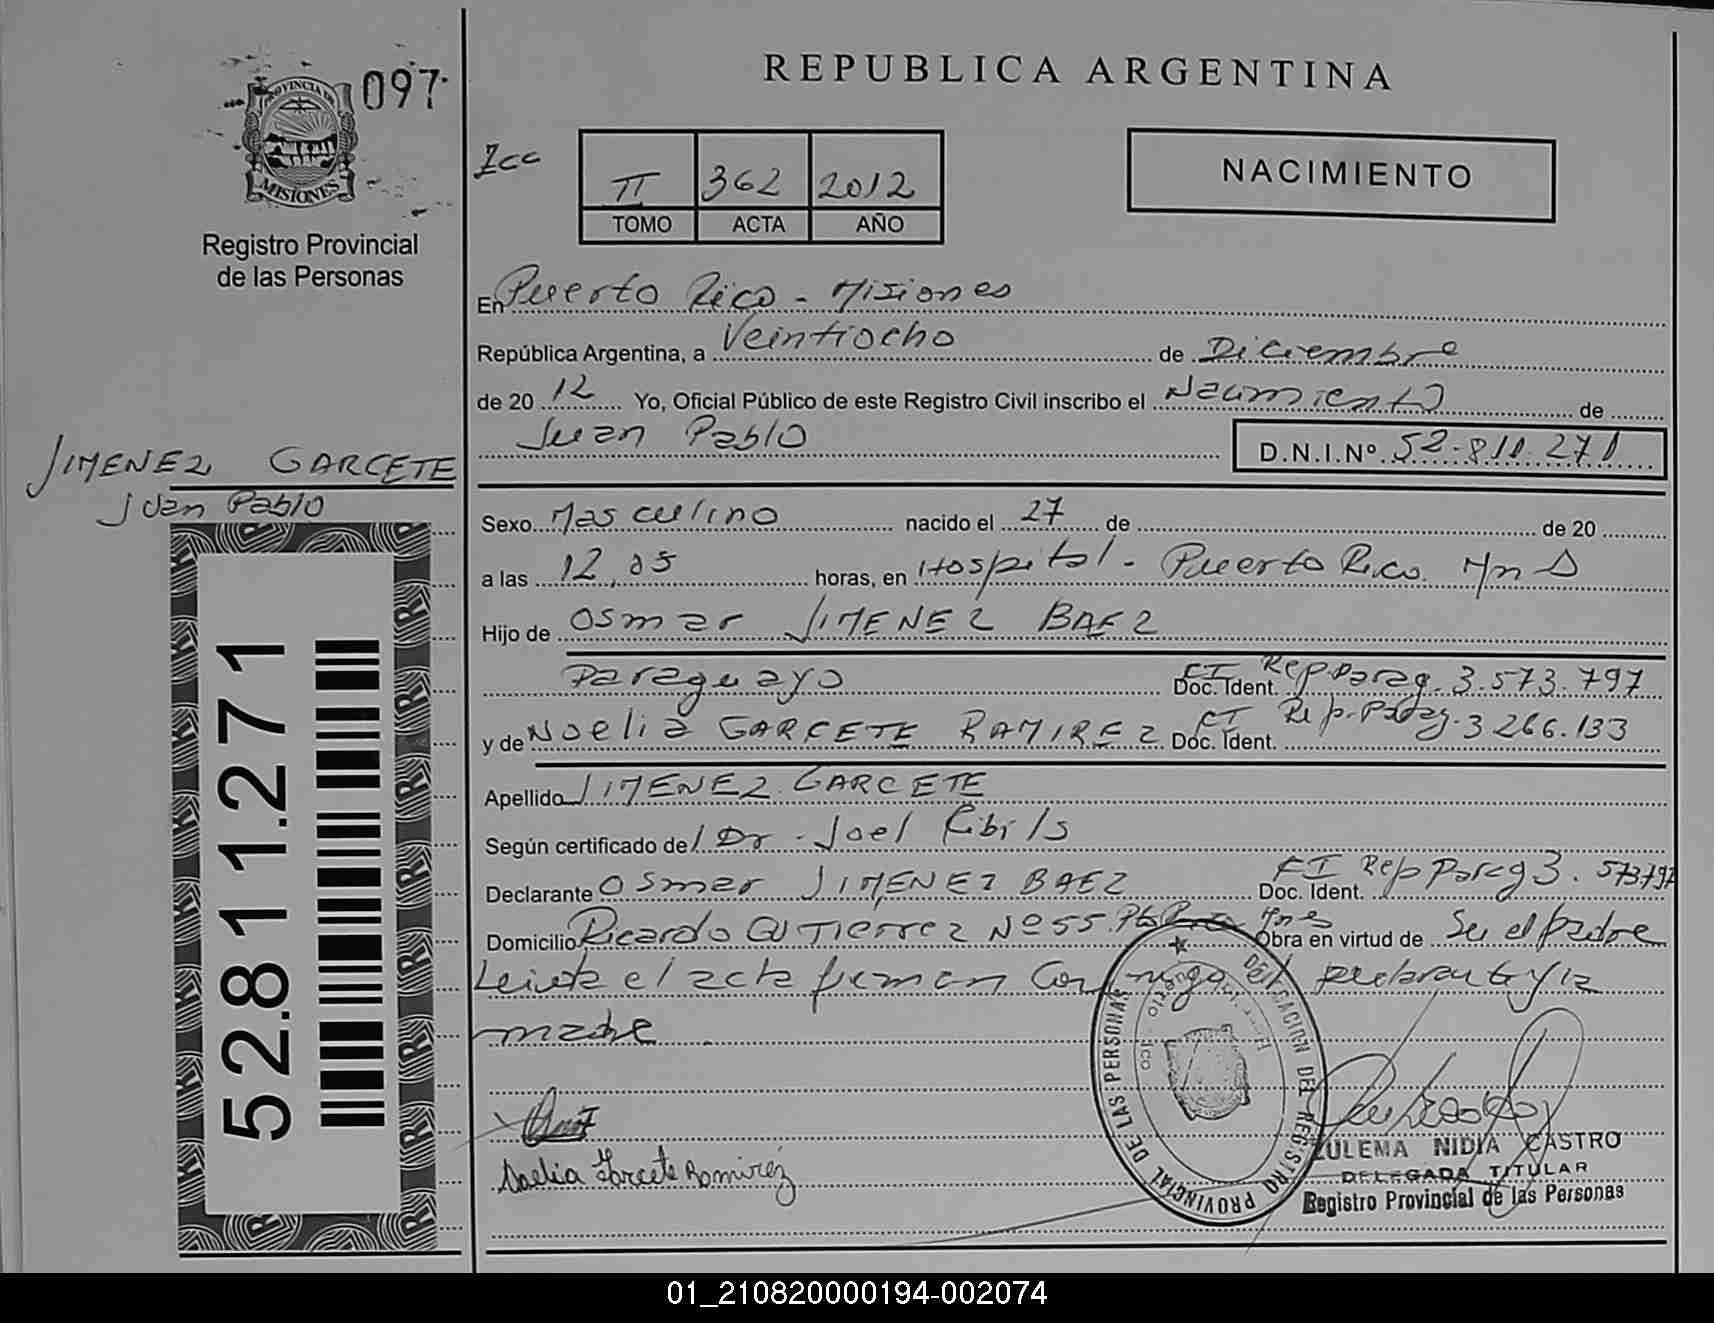 097
PROVINCIA DE
MISIONES
Registro Provincial
de las Personas
JIMENEZ GARCETE
Juan Pablo
52.811.271
REPUBLICA ARGENTINA
II 362 2012
TOMO ACTA AÑO
NACIMIENTO
En Puerto Rico - Misiones
República Argentina, a Veintiocho de Diciembre
de 20 12 Yo, Oficial Público de este Registro Civil inscribo el Nacimiento de
Juan Pablo D.N.I.Nº 52.811.271
Sexo Masculino nacido el 27 de de 20
a las 12,05 horas, en Hospital - Puerto Rico Mnes
Hijo de Osmar JIMENEZ BAEZ
Paraguayo Doc. Ident. CI Rep Parag. 3.573.797
y de Noelia GARCETE RAMIREZ Doc. Ident. CI Rep. Parag. 3266.133
Apellido JIMENEZ GARCETE
Según certificado de Dr. Joel
Declarante Osmar JIMENEZ BAEZ Doc. Ident. CI Rep Parag 3.573.797
Domicilio Ricardo GUTIERREZ Nº 55. Mnes Obra en virtud de Ser el padre
Leida el acta firman Conmigo el declarante y la
madre
Noelia Garcete Ramirez
DELEGACION DEL REGISTRO PROVINCIAL DE LAS PERSONAS
ZULEMA NIDIA CASTRO
DELEGADA TITULAR
Registro Provincial de las Personas
01_210820000194-002074